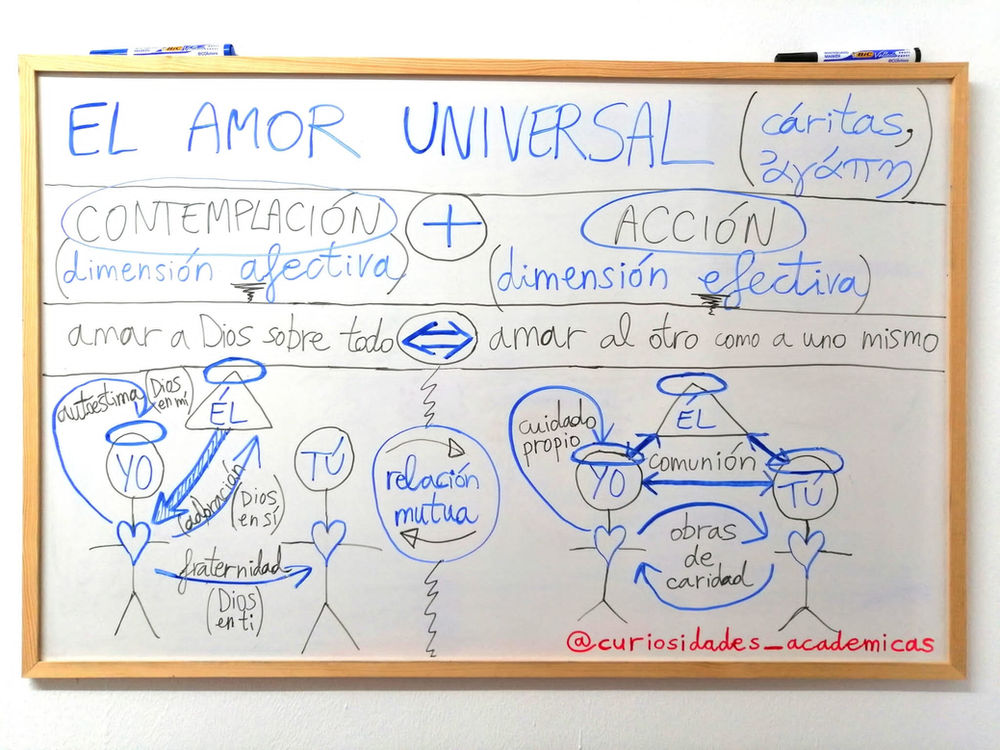 EL AMOR UNIVERSAL (cáritas,
ἀγάπη)
CONTEMPLACIÓN + ACCIÓN
(dimensión afectiva) (dimensión efectiva)
amar a Dios sobre todo ⇔ amar al otro como a uno mismo
autoestima
(Dios
en mí)
ÉL
YO
TÚ
(adoración)
(Dios
en sí)
fraternidad
(Dios
en ti)
relación
mutua
cuidado
propio
ÉL
YO
comunión
TÚ
obras
de
caridad
@curiosidades_academicas
BIC
BIC